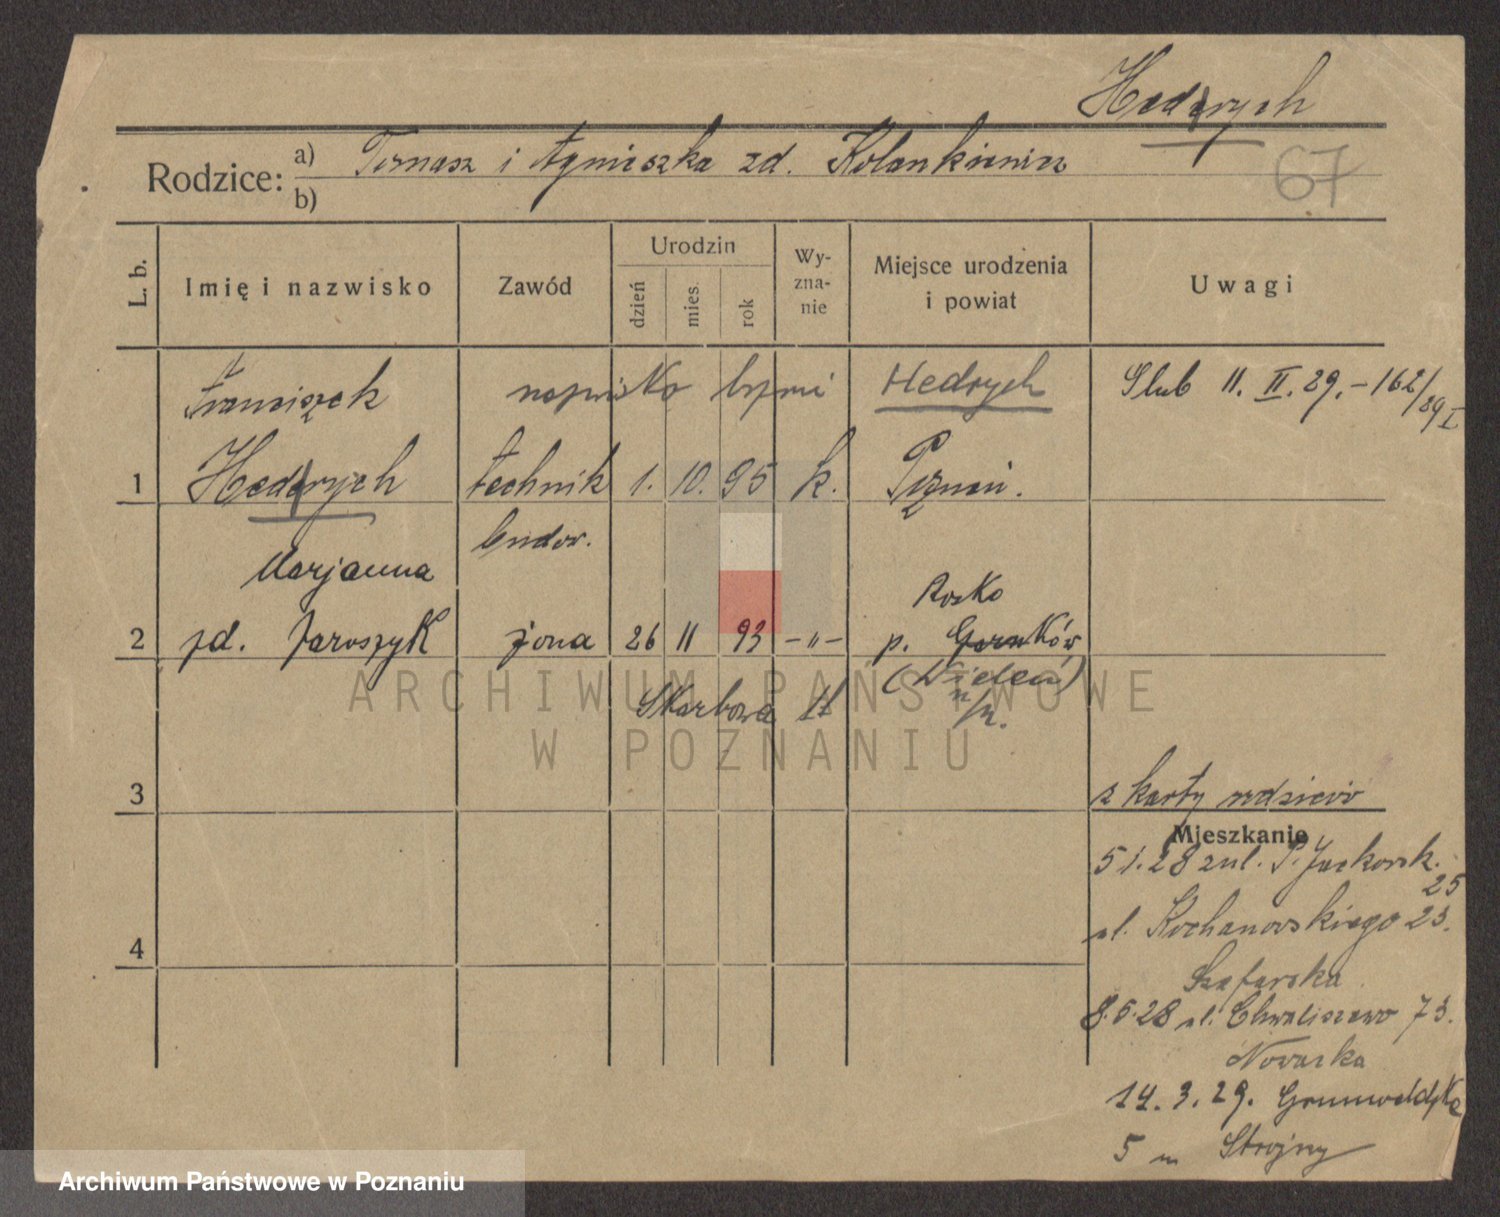 Hedrych
Rodzice:
a) Tomasz i Agnieszka zd. Kolankiewicz
b)
67
L. b.
Imię i nazwisko
Zawód
Urodzin
dzień
mies.
rok
Wy-
zna-
nie
Miejsce urodzenia
i powiat
Uwagi
Franciszek
brzmi Hedrych
Slub 11. II. 29. - 162/29 I
1 Hedrych technik 1. 10. 95 k. Poznań.
budow.
Marjanna
Rosko
2 zd. Jaroszyk żona 26 11 93 -"- p. Czarnków
(Wieleń)
n/N.
Skarbowa 17
3
z karty rodziców
Mieszkanie
5 1. 28 z ul. P. Jackowsk.
25
4
ul. Kochanowskiego 23.
Szafarska
8.5.28 ul. Chwaliszewo 73.
Nowaska
14. 3. 29. Grunwaldzka
5 m Strojny
ARCHIWUM PAŃSTWOWE
W POZNANIU
Archiwum Państwowe w Poznaniu